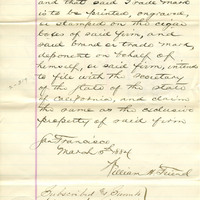 and that said Trade Mark
is to be printed, engraved,
or stamped on the cigar
boxes of said firm, and
said brand or trade mark,
deponent on behalf of
himself, & said firm intends
to file with the Secretary
of the State of the State
of California, and claims
the same as the exclusive
property of said firm
San Francisco,
March 5th 1884
William H Friend
Subscribed & Sworn to